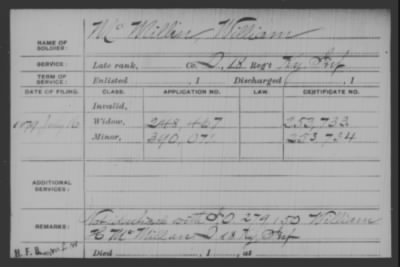 NAME OF SOLDIER: McMillin, William
SERVICE: Late rank, Co. D, 18 Reg't Ky Inf
TERM OF SERVICE: Enlisted , 1 Discharged , 1
DATE OF FILING. CLASS. APPLICATION NO. LAW. CERTIFICATE NO.
Invalid,
1879 July 10 Widow, 248,467 253,733
Minor, 390,071 253,734
ADDITIONAL SERVICES:
REMARKS: Not identical with S.O. 279,150 William
H McMillan D 18 Ky Inf
Died , 1 , at